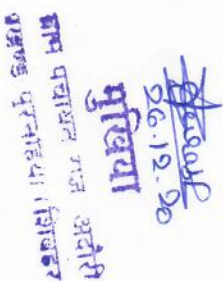 26.12.20
मुखिया
ग्राम पंचायत राज अदौरी
प्रखण्ड पुरनहिया (शिवहर